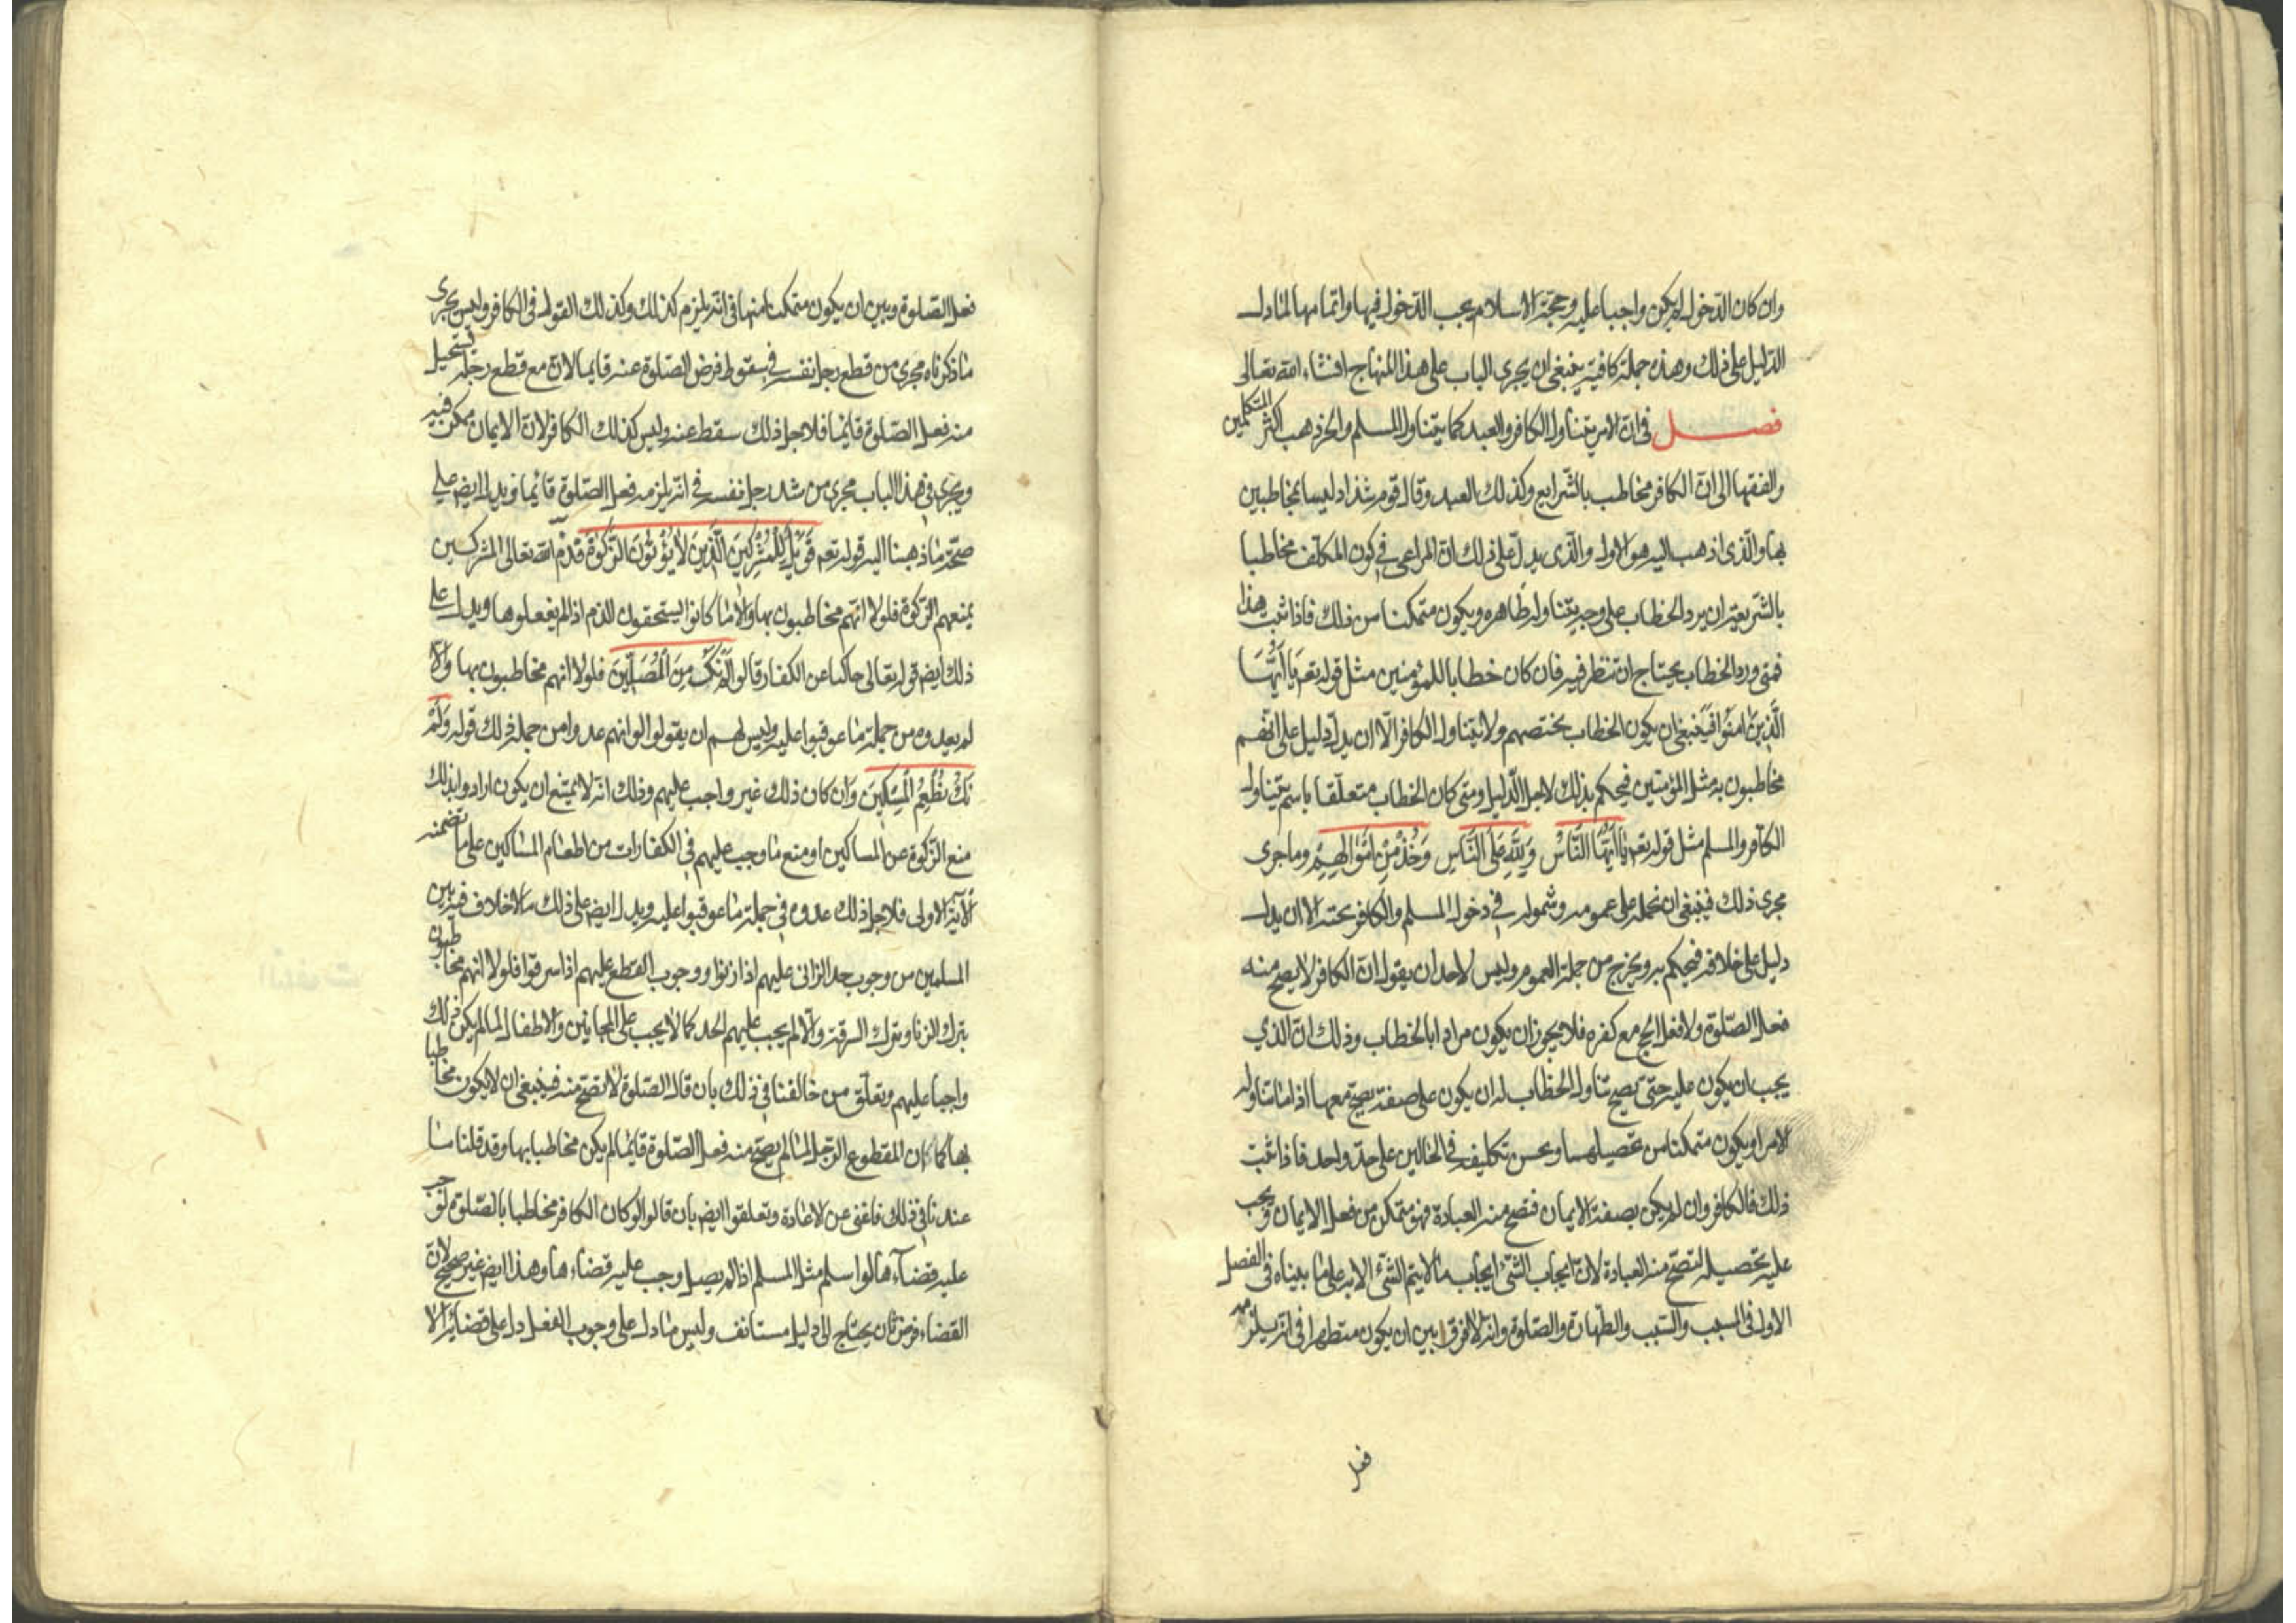 وان كان الدّخول لم يكن واجبا عليه وحجّة الاسلام يجب الدّخول فيها واتمامها لما دل
الدّليل على ذلك وهذه جملة كافية ينبغى ان يجرى الباب على هذا المنهاج انشاء الله تعالى
فصل فى انّ الامر يتناول الكافر والعبد كما يتناول المسلم والحرّ ذهب اكثر المتكلمين
والفقها الى انّ الكافر مخاطب بالشّرايع وكذلك العبد وقال قوم شذاد ليسا بمخاطبين
بها والّذى اذهب اليه هو الاول والّذى يدلّ على ذلك انّ المراعى فى كون المكلّف مخاطبا
بالشّريعة ان يرد الخطاب على وجه يتناوله ظاهره ويكون متمكنا من ذلك فاذا ثبت هذا
فمتى ورد الخطاب يحتاج ان تنظر فيه فان كان خطابا للمؤمنين مثل قوله تعه يَا أَيُّهَا
الَّذِينَ امَنُوا فينبغى ان يكون الخطاب يختصهم ولا يتناول الكافر الّا ان يدلّ دليل على انّهم
مخاطبون به مثل المؤمنين فيحكم بذلك لاجل الدّليل ومتى كان الخطاب متعلّقا باسم يتناول
الكافر والمسلم مثل قوله تعه يَا أَيُّهَا النَّاسُ وَلِلّهِ عَلَى النَّاسِ وَخُذْ مِنْ امْوَالِهِمْ وما جرى
مجرى ذلك فينبغى ان نحمله على عمومه وشموله فى دخول المسلم والكافر تحته الا ان يدل
دليل على خلافه فيحكم به ويخرج من جملة العموم وليس لاحد ان يقول انّ الكافر لا يصح منه
فعل الصّلوة ولا فعل الحج مع كفره فلا يجوز ان يكون مرادا بالخطاب وذلك انّ الذي
يجب ان يكون عليه حتّى يصح تناول الخطاب له ان يكون على صفة يصحّ معها اداء ما تناوله
الامر او يكون متمكنا من تحصيلها ويحسن تكليفه فى الحالين على حدّ واحد فاذا ثبت
ذلك فالكافر وان لم يكن بصفة الايمان فتصح منه العبادة فهو متمكن من فعل الايمان ويجب
عليه تحصيله لتصحّ منه العبادة لانّ ايجاب الشّئ ايجاب ما لا يتم الشّئ الا به على ما بيناه فى الفصل
الاول فى السبب والمسبّب والطّهارة والصّلوة وانه لا فرق بين ان يكون متطهرا فى انه يلزمه
فعل
فعل الصّلوة وبين ان يكون متمكنا منها فى انّه يلزم كذلك وكذلك القول فى الكافر وليس يجرى
ما ذكرناه مجرى من قطع رجل نفسه فى سقوط فرض الصّلوة عنه قايما لانّ مع قطع رجله يستحيل
منه فعل الصّلوة قائما فلاجل ذلك سقط عنه وليس كذلك الكافر لانّ الايمان ممكن فيه
ويجرى فى هذا الباب مجرى من شد رجل نفسه فى انّه يلزمه فعل الصّلوة قائما ويدل ايض على
صحّة ما ذهبنا اليه قوله تعه فَوَيْلٌ لِلْمُشْرِكِينَ الَّذِينَ لَا يُؤْتُونَ الزَّكوةَ فذمّ الله تعالى المشركين
بمنعهم الزكوة فلولا انّهم مخاطبون بها والّا ما كانوا يستحقون الذم اذا لم يفعلوها ويدل على
ذلك ايض قوله تعالى حاكيا عن الكفار قالوا لَمْ نَكُ مِنَ الْمُصَلِّينَ فلولا انهم مخاطبون بها والّا
لم يعدوه من جملة ما عوقبوا عليه وليس لهم ان يقولوا لو انهم عدوا من جملة ذلك قوله وَلَمْ
نَكُ نُطْعِمُ الْمِسْكِينَ وان كان ذلك غير واجب عليهم وذلك انّه لا يمتنع ان يكون ارادوا بذلك
منع الزّكوة عن المساكين او منع ما وجب عليهم فى الكفارات من اطعام المساكين على ما تضمنه
الآية الاولى فلاجل ذلك عدوه فى جملة ما عوقبوا عليه ويدل ايض على ذلك ما لا خلاف فيه بين
المسلمين من وجوب حد الزانى عليهم اذا زنوا ووجوب القطع عليهم اذا سرقوا فلولا انهم مخاطبون
بترك الزنا وبترك السرقة والّا لم يجب عليهم الحد كما لا يجب على المجانين والاطفال لما لم يكن ذلك
واجبا عليهم وتعلّق من خالفنا فى ذلك بان قال الصّلوة لا تصحّ منه فينبغى ان لا يكون مخاطبا
بها كما ان المقطوع الرّجل لما لم يصحّ منه فعل الصّلوة قايما لم يكن مخاطبا بها وقد قلنا ما
عندنا فى ذلك فاغنى عن الاعادة وتعلقوا ايض بان قالوا لو كان الكافر مخاطبا بالصّلوة لوجب
عليه قضاءها لو اسلم مثل المسلم اذا لم يصل وجب عليه قضاءها وهذا ايض غير صحيح لانّ
القضاء فرض ثان يحتاج الى دليل مستانف وليس ما دل على وجوب الفعل دل على قضائه الا